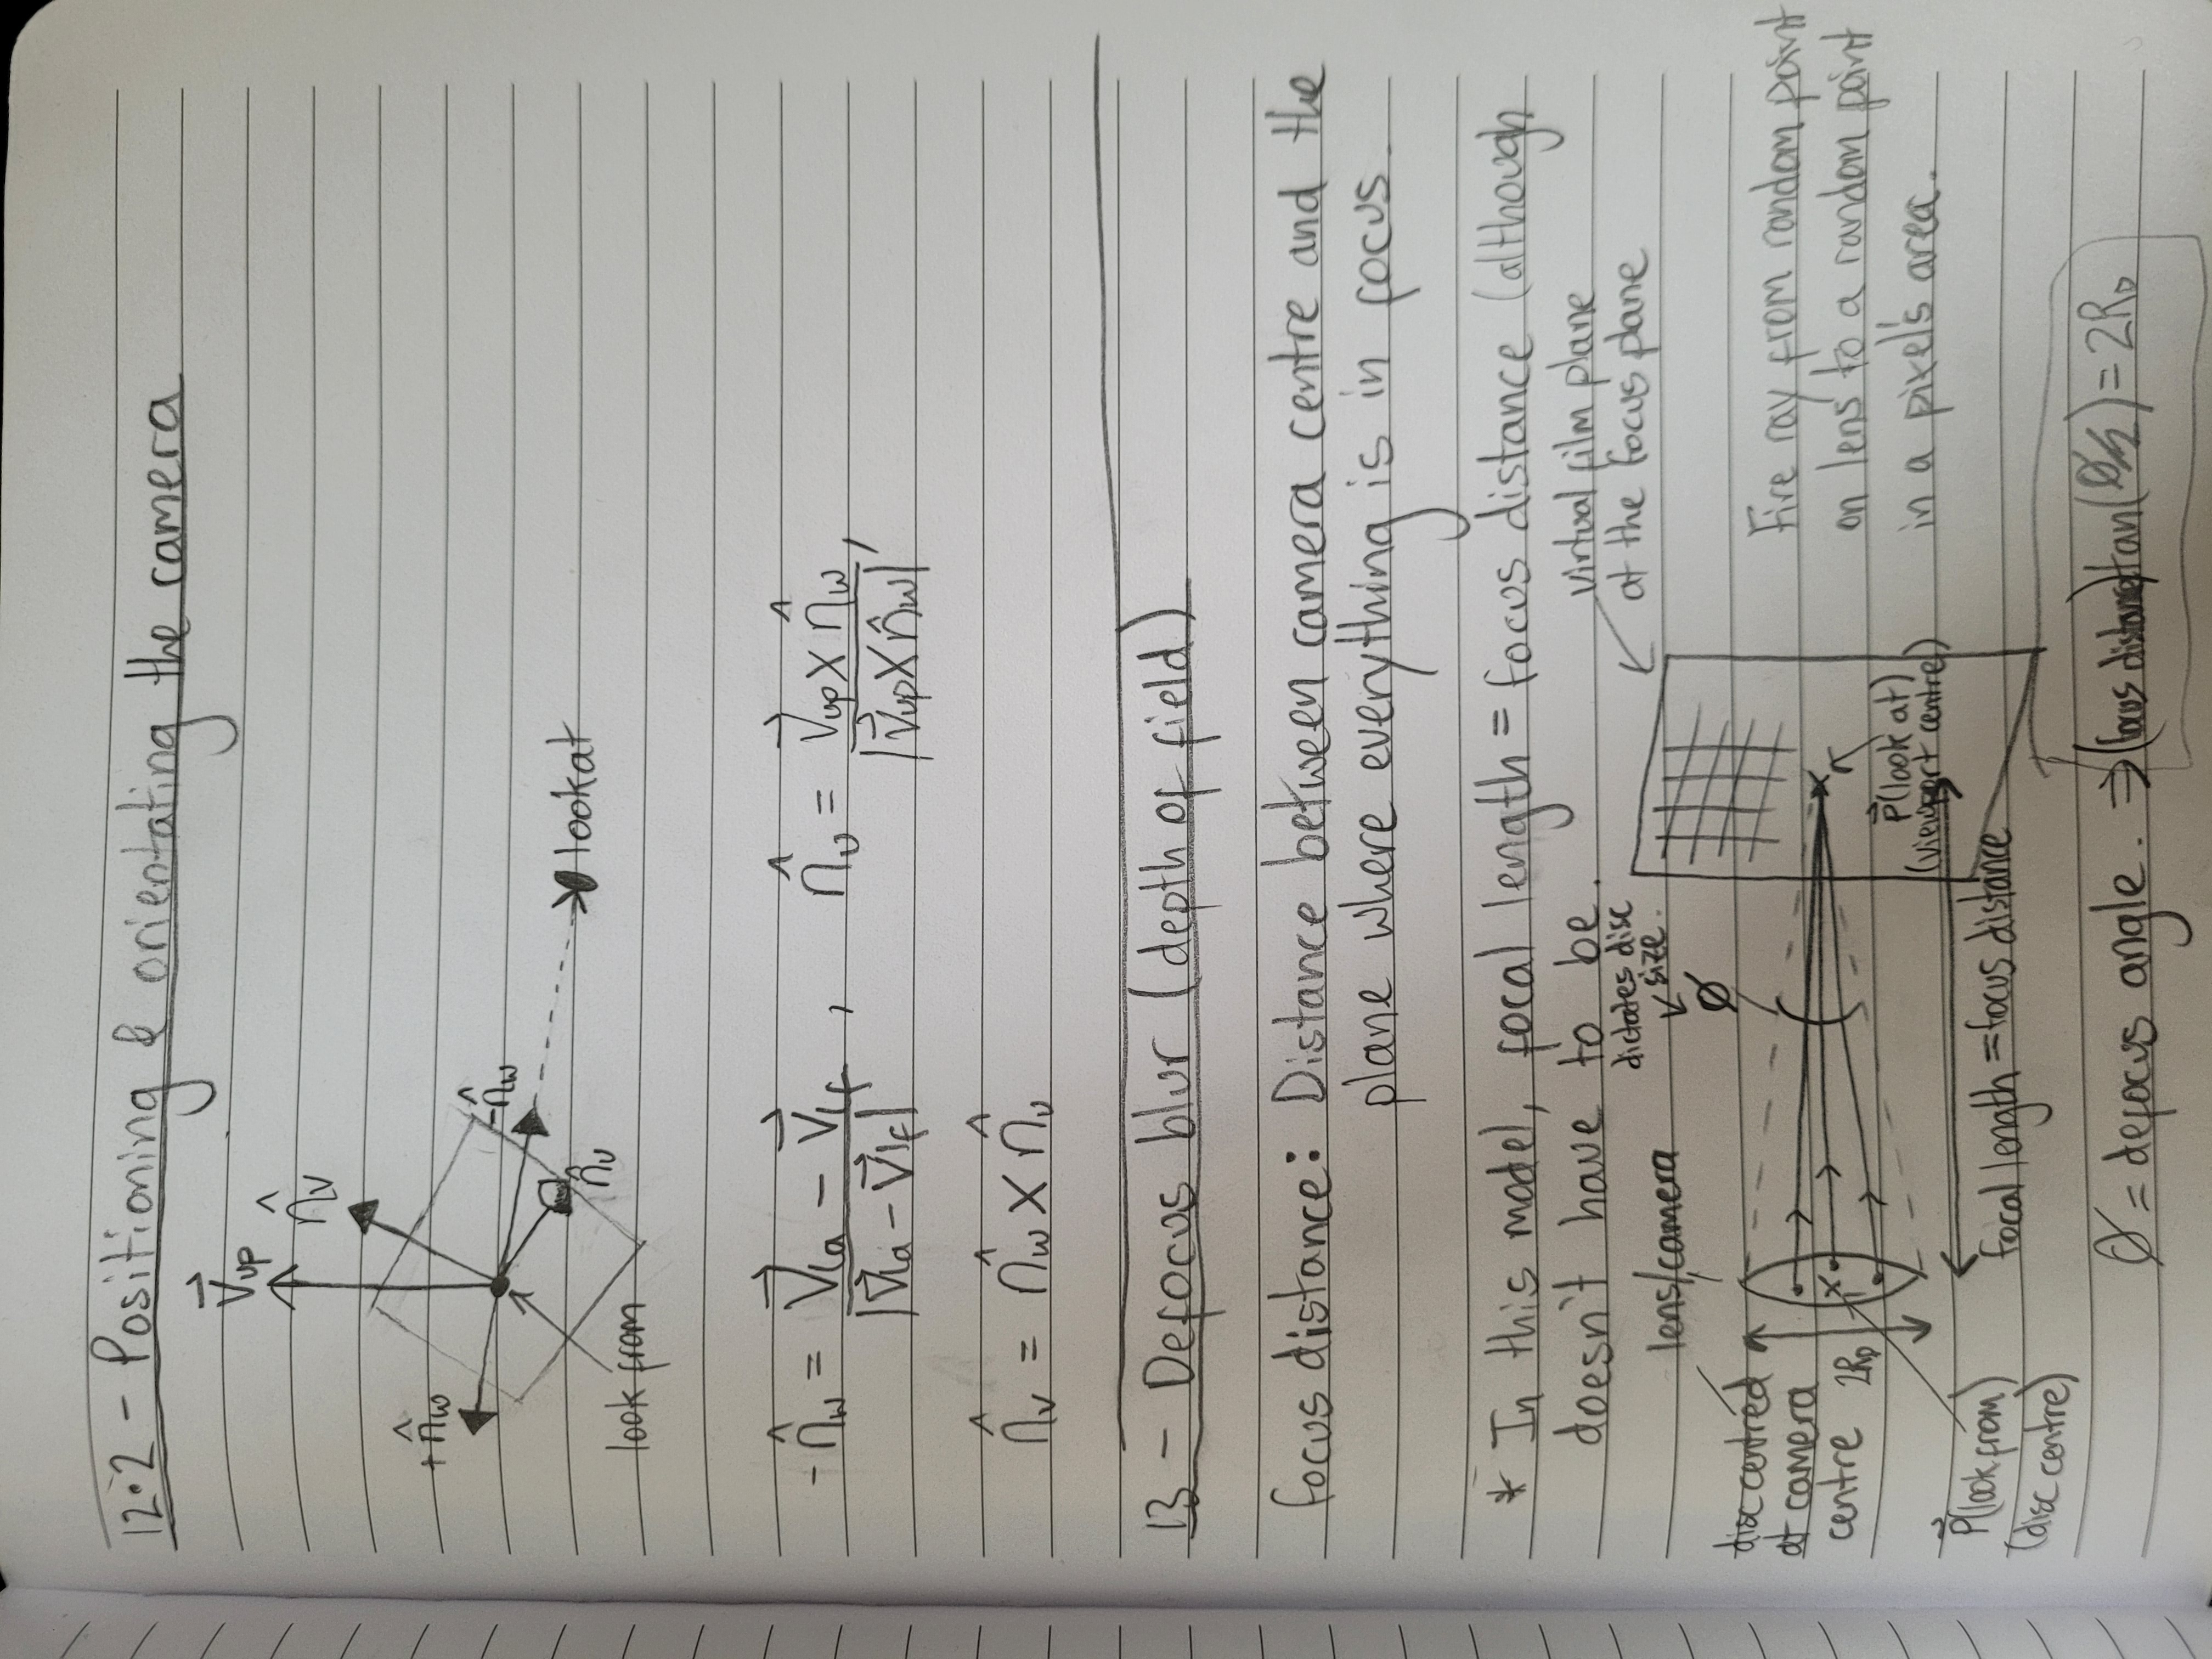 12.2 - Positioning & orientating the camera
V⃗up
n̂v
+n̂w
-n̂w
lookat
n̂u
look from
-n̂w = (V⃗la - V⃗lf) / |V⃗la - V⃗lf| , n̂u = (V⃗up X n̂w) / |V⃗up X n̂w| ,
n̂v = n̂w X n̂u
13 - Defocus blur (depth of field)
focus distance: Distance between camera centre and the
plane where everything is in focus.
* In this model, focal length = focus distance (although
doesn't have to be.
virtual film plane
at the focus plane
dictates disc
size.
lens/camera
Ø
disc centred
at camera
centre
2R_D
Fire ray from random point
on lens to a random point
in a pixel's area.
P⃗(look at)
(viewport centre)
P⃗(look from)
(disc centre)
focal length = focus distance
Ø = defocus angle. ⇒ (focus distance)tan(Ø/2) = 2R_D